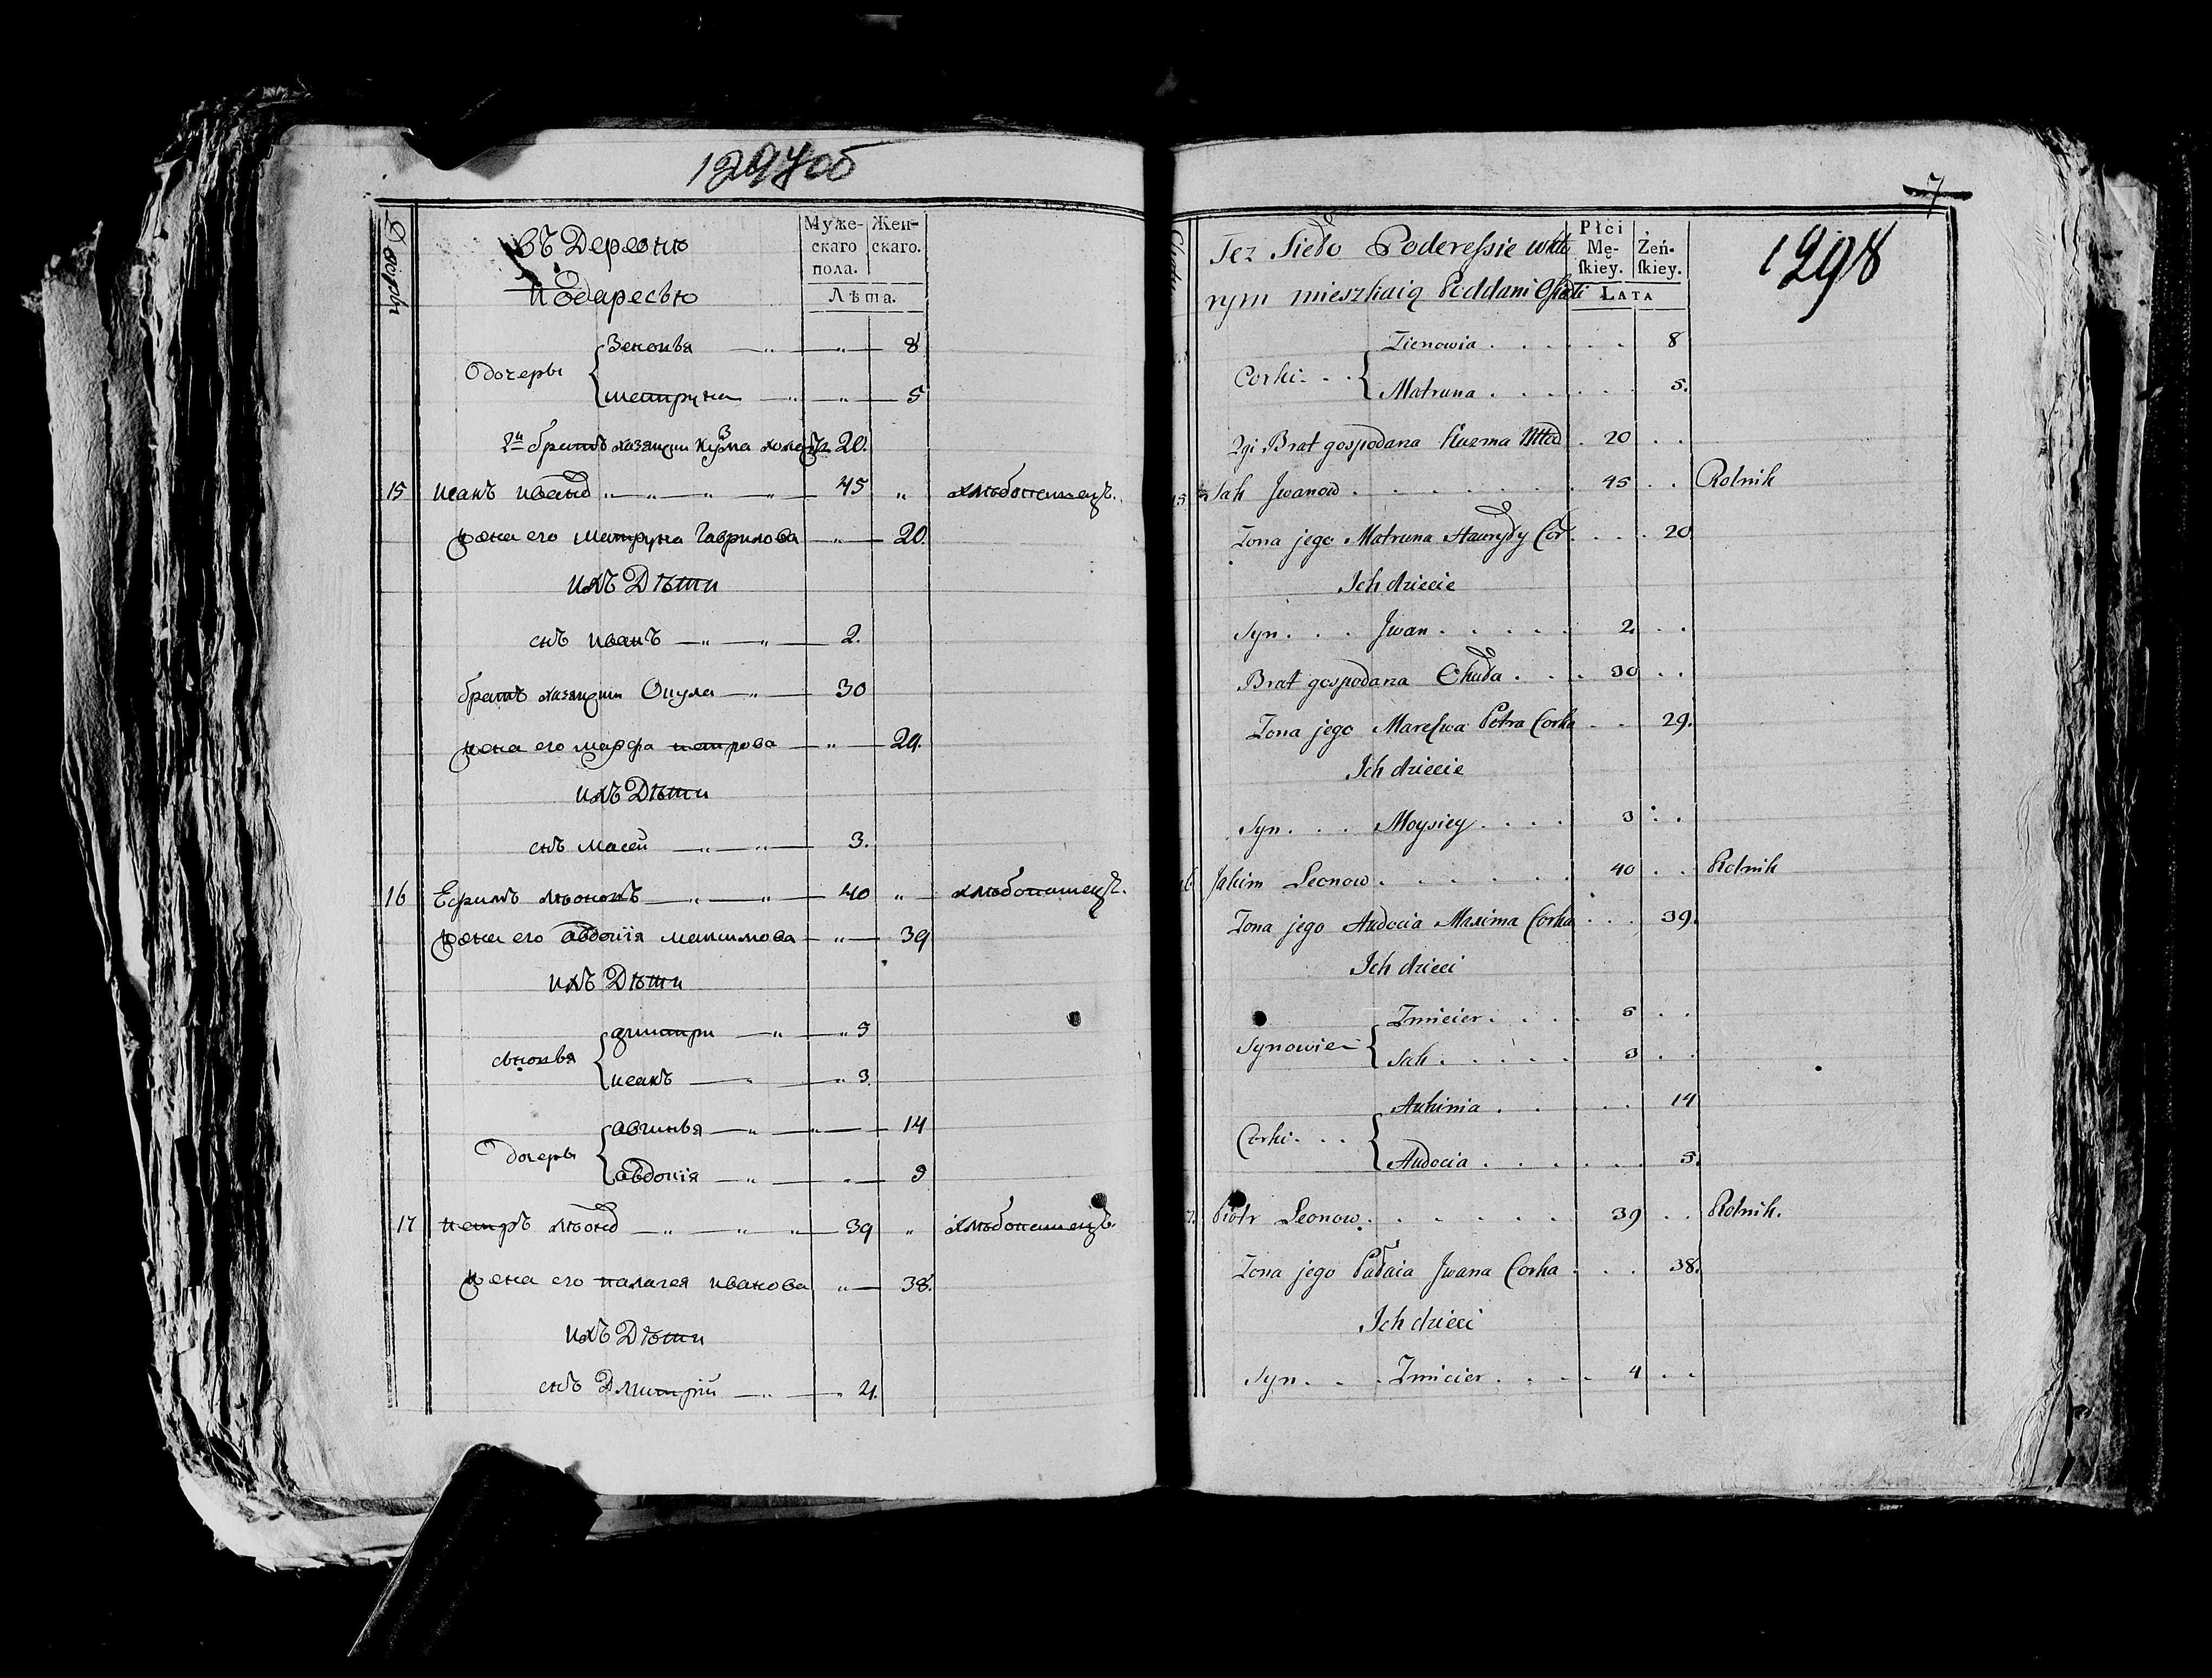 1297об
Дворы
въ Деревню
Подаресью
Муже-
скаго
пола.
Жен-
скаго.
Лѣта.
дочеры
Зеновья — „ — „ — 8
матруна — „ — „ — 5
2й братъ хазяину Кузма холостъ 20.
15 исакъ ивановъ „ — „ — „ — „ — 45 „ хлѣбопашецъ.
жена его матруна Гаврилова — „ — 20.
ихъ Дѣти
снъ иванъ — „ — „ — 2.
братъ хазяину — „ — 30
жена его марфа петрова — „ — 29.
ихъ Дѣти
снъ масей — „ — „ — 3.
16 Ефимъ лѣоновъ — „ — „ — 40 „ хлѣбопашецъ.
жена его авдопія максимова — „ — 39
ихъ Дѣти
сыновья
дмитри — „ — „ 5
исакъ — „ — „ 3.
дочеры
авгинья — „ — „ — 14
авдопія — „ — „ — 5
17 петръ лѣоновъ — „ — „ — „ 39 „ хлѣбопашецъ.
жена его палагея иванова „ — 38.
ихъ Дѣти
снъ Дмитрій — „ — „ 4.
7
1298
Tez Sieło Poderessie w któ
rym mieszkaią Poddani
Płci
Mę-
skiey.
Żeń-
skiey.
LATA
Corki . .
Zienowia . . . . . . 8
Matruna . . . . . . 5.
2gi Brat gospodarza Kuzma Mło . 20 . .
15 Sak Jwanow . . . . . . . 45 . . Rolnik
Zona jego Matruna Hauryły Cor . . . . 20
Ich dziecie
Syn . . . Jwan . . . . . 2. . .
Brat gospodarza . . . . 30 . .
Zona jego Mareswa Petra Corka . . 29.
Ich dziecie
Syn . . . Moysiey . . . . 3 . .
Jakim Leonow . . . . . . 40 . . Rolnik
Zona jego Audocia Maxima Corka . . . 39.
Ich dzieci
Synowie
Zmicier . . . . 5 . .
Sak . . . . . 3 . .
Corki . . .
Auhinia . . . . . 14
Audocia . . . . . . 5.
Piotr Leonow . . . . . . 39 . . Rolnik.
Zona jego Pałaia Jwana Corka . . . 38.
Ich dzieci
Syn . . . Zmicier . . . . 4 . .